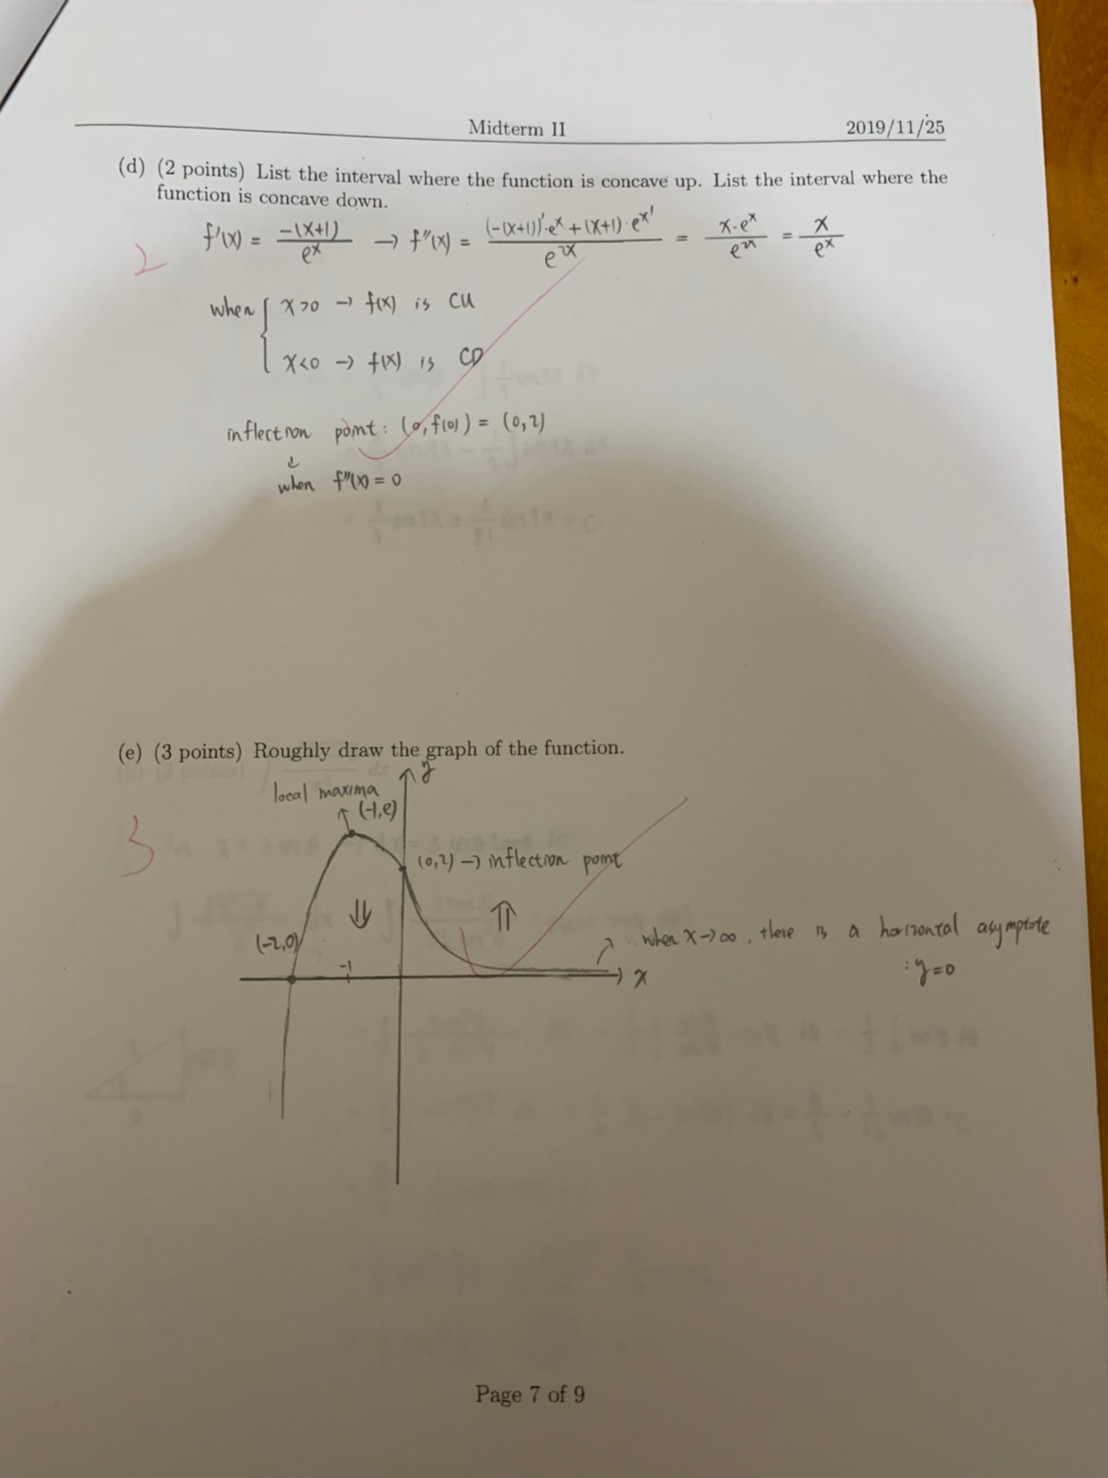 Midterm II 2019/11/25
(d) (2 points) List the interval where the function is concave up. List the interval where the
function is concave down.
2 f'(x) = -(x+1)/e^x → f''(x) = ((-(x+1))'·e^x + (x+1)·e^x')/e^2x = x·e^x/e^2x = x/e^x
when { x>0 → f(x) is CU
x<0 → f(x) is CD
inflection point: (0, f(0)) = (0,2)
↓
when f''(x) = 0
(e) (3 points) Roughly draw the graph of the function.
3
y
local maxima
(-1,e)
(0,2) → inflection point
(-2,0)
when x→∞, there is a horizontal asymptote
: y=0
-1
x
Page 7 of 9